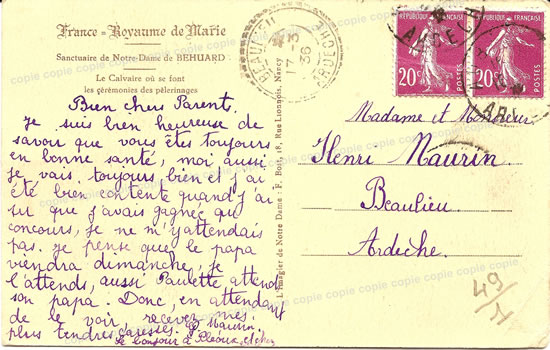 France - Royaume de Marie
Sanctuaire de Notre-Dame de BEHUARD
Le Calvaire où se font
les cérémonies des pèlerinages
Bien chers Parents.
Je suis bien heureuse de
savoir que vous êtes toujours
en bonne santé, moi aussi
je vais toujours bien et j'ai
été bien contente quand j'ai
su que j'avais gagnée au
concours, je ne m'y attendais
pas. je pense que le papa
viendra dimanche, je
l'attends, aussi Paulette attend
son papa. Donc, en attendant
de le voir, recevez mes
plus tendres caresses. Maurin.
le bonjour à
L'Imagier de Notre Dame: F. Boly 18, Rue Lionnois, Nancy
BEAULIEU
17-3
36
ARDECHE
REPUBLIQUE FRANÇAISE
20c
POSTES
REPUBLIQUE FRANÇAISE
20c
POSTES
Madame et Monsieur
Henri Maurin
Beaulieu
Ardèche
49/1
copie copie copie copie